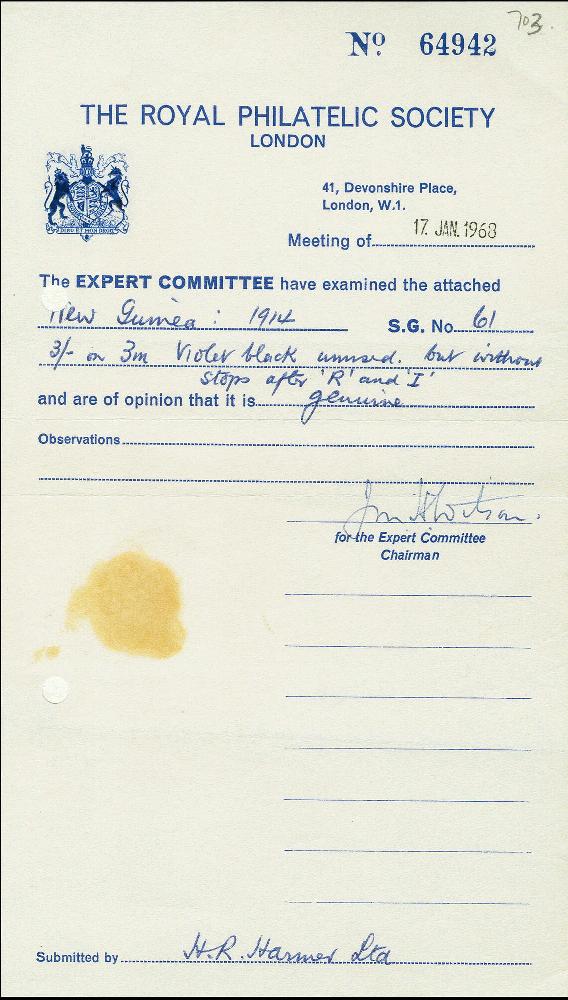 703.
Nº 64942
THE ROYAL PHILATELIC SOCIETY
LONDON
41, Devonshire Place,
London, W.1.
Meeting of 17. JAN. 1968
The EXPERT COMMITTEE have examined the attached
New Guinea : 1914 S.G. No. 61
3/- on 3m Violet black unused. but without
stops after 'R' and 'I'
and are of opinion that it is genuine
Observations
for the Expert Committee
Chairman
Submitted by H.R. Harmer Ltd